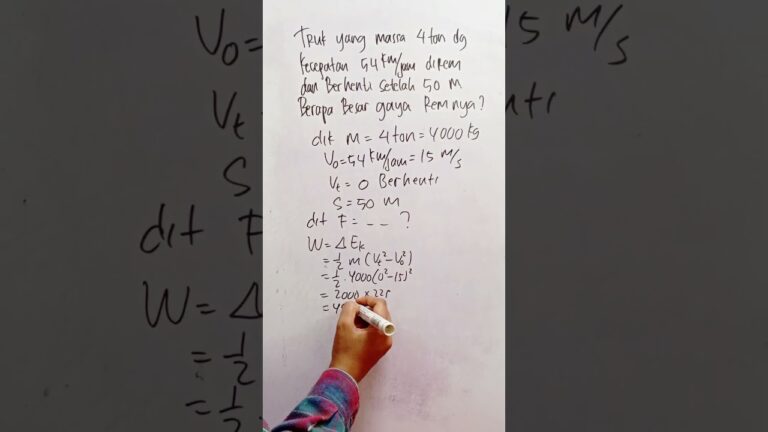 Truk yang massa 4 ton dg
kecepatan 54 km/jam direm
dan Berhenti setelah 50 M
Berapa Besar gaya Remnya?
dit M = 4 ton = 4000 kg
V₀ = 54 km/jam = 15 M/s
Vt = 0 Berhenti
S = 50 M
dit F = _ _ ?
W = Δ Ek
= ½ m (Vt² - V₀²)
= ½ . 4000 (0² - 15)²
= 2000 × 225